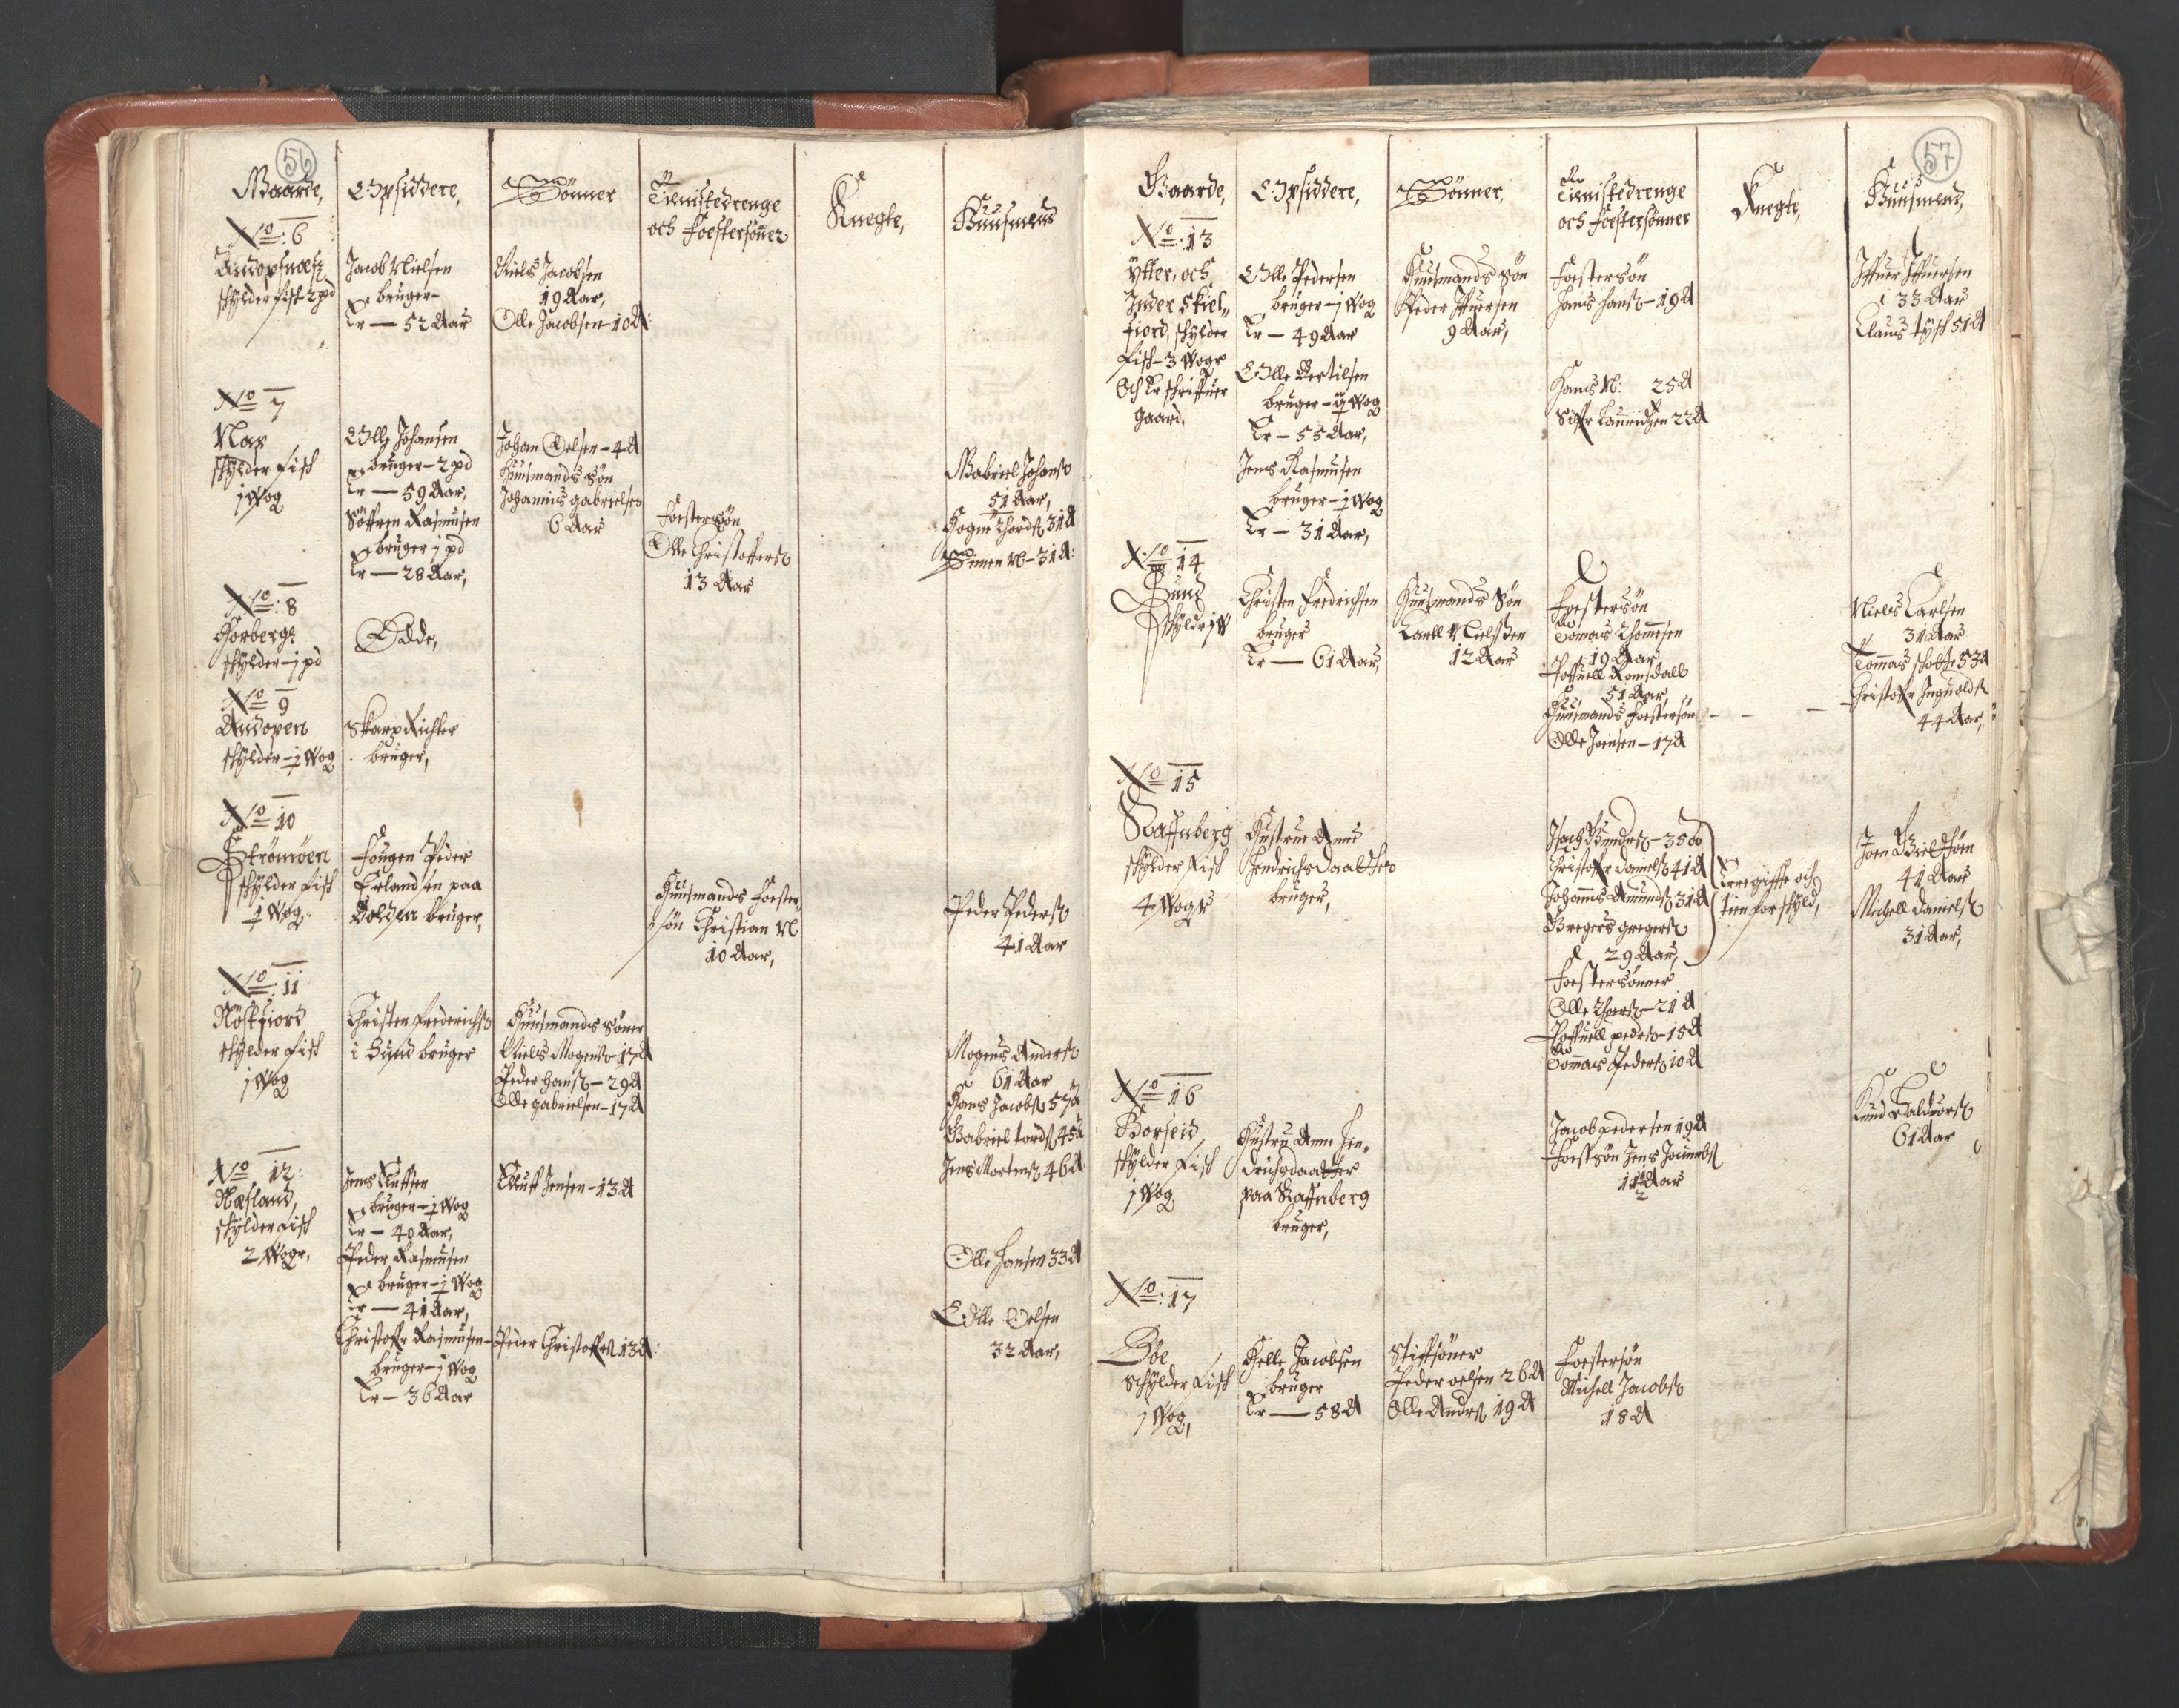 56
Gaarde,
Opsiddere,
Sønner
Tienistedrenge
och Foestersønner
Knegte,
Huusmend
No: 6
schylder fisch 2 pd
Jacob Nielsen
bruger
Er — 52 Aar
Niels Jacobsen
19 Aar,
Olle Jacobsen 10 A:
No 7
schylder Fisch
1 Wog
Olle Johansen
bruger – 2 pd
Er — 59 Aar,
Søffren Rasmusen
bruger 1 pd
Er — 28 Aar,
Johan Oelsen – 4 A
Huusmands Søn
Johannis gabrielsen
6 Aar
Foestersøn
Olle Christoffers
13 Aar
Gabriel Johans
51 Aar,
31 A
Simen N – 31 A:
No: 8
schylder – 1 pd
Øde,
No 9
Andopen
schylder – 1 Wog
bruger,
No 10
Strømøen
schylder Fisch
1 Wog.
Fougen Peder
Erlandsen paa
bruger,
Huusmands Foester
søn Christian N
10 Aar,
Peder Peders
41 Aar
No: 11
Nøstfiord
schylder Fisch
1 Wog
Christen Frederichs
i Sund bruger
Huusmands Søner
Niels Mogens – 17 A
Peder Hans – 29 A
Olle gabrielsen – 17 A
Mogens Anders
61 Aar
Hans Jacobs 57 A
Gabriel tords 45 A
Jens Mortens 46 A
No 12:
Næsland,
schylder Fisch
2 Wogr,
Jens Kluffsen
bruger – 1 Wog
Er – 40 Aar,
Peder Rasmusen
bruger – 1 Wog
Er — 41 Aar,
Christoffr Rasmusen
bruger – 1 Wog
Er – 36 Aar
Jensen – 13 A
Peder Christoffers 13 A:
Olle Hansen 33 A
Olle Oelsen
32 Aar,
57
Gaarde,
Opsiddere,
Sønner,
Tienistedrenge
och Foestersønner
Knegte,
Huusmend,
No: 13
Ytter, och
Inder Skiel„
fiord, schylder
Fisch – 3 Wogr
Och Er schriffuer
gaard.
Olle Pedersen
bruger – 1 Wog
Er – 49 Aar
Olle Bertilsen
bruger – 1 Wog
Er – 55 Aar,
Jens Rasmusen
bruger – 1 Wog
Er – 31 Aar,
Huusmands Søn
Peder Iffuersen
9 Aar,
Foestersøn
Hans Hans – 19 A
Hans N: 25 A
Siffr Lauridzen 22 A
Iffuer Iffuersen
33 Aar
Claus tysch 51 A
No 14
Sund
schyldr 1 W
Christen Fredrichsen
bruger
Er — 61 Aar,
Huusmands Søn
Carll Nielssen
12 Aar
Foestersøn
Tomas Thomesen
19 Aar
Poffuell Romsdall
51 Aar
Huusmands Foestersøn
Olle Joensen – 17 A
Niels Carlsen
31 Aar
Tommas 53 A
Christoffr Inguolds
44 Aar,
No 15
Raffnberg
schylder Fisch
4 Wogr
Hustrue Anne
Hendrichsdaatther
bruger,
35 A
Christoffr Daniels 41 A
Johannis Amunds 31 A
Gregers gregers
29 Aar,
Foestersønner
Olle Thors – 21 A
Poffuell peders – 15 A
Tommas Peders 10 A
Er egiffte och
tien for schyld,
41 Aar
Michell Daniels
31 Aar,
No 16
Borseid,
schylder Fisch
1 Wog
Hustru Anne Hen„
drichsdaatter
paa Raffnberg
bruger,
Jacob pedersen 19 A
Foestsøn Jens
Aar
Knud Baldvors
61 Aar
No: 17
Bøe
Schylder Fisch
1 Wog,
Helle Jacobsen
bruger
Er — 58 A
Stiffsøner
Peder oelsen 26 A
Olle Anders 19 A
Foestersøn
Michell Jacobs
18 A